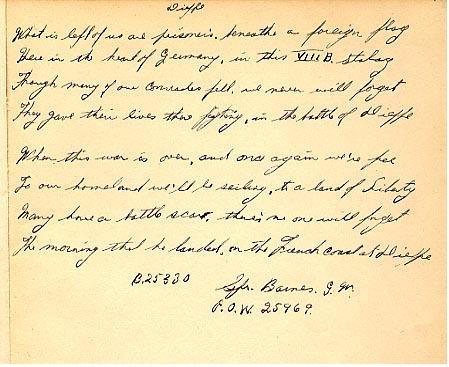 Dieppe
What is left of us are prisoners, beneath a foreign flag
Here in the heart of Germany, in this VIII B. Stalag
Though many of our comrades fell, we never will forget
They gave their lives there fighting, in the battle of Dieppe
When this war is over, and once again we're free
To our homeland we'll be sailing, to a land of Liberty
Many have a battle scar, there's no one will forget
The morning that he landed, on the French coast at Dieppe
B.25330
Barnes. G. W.
P.O.W. 25969.